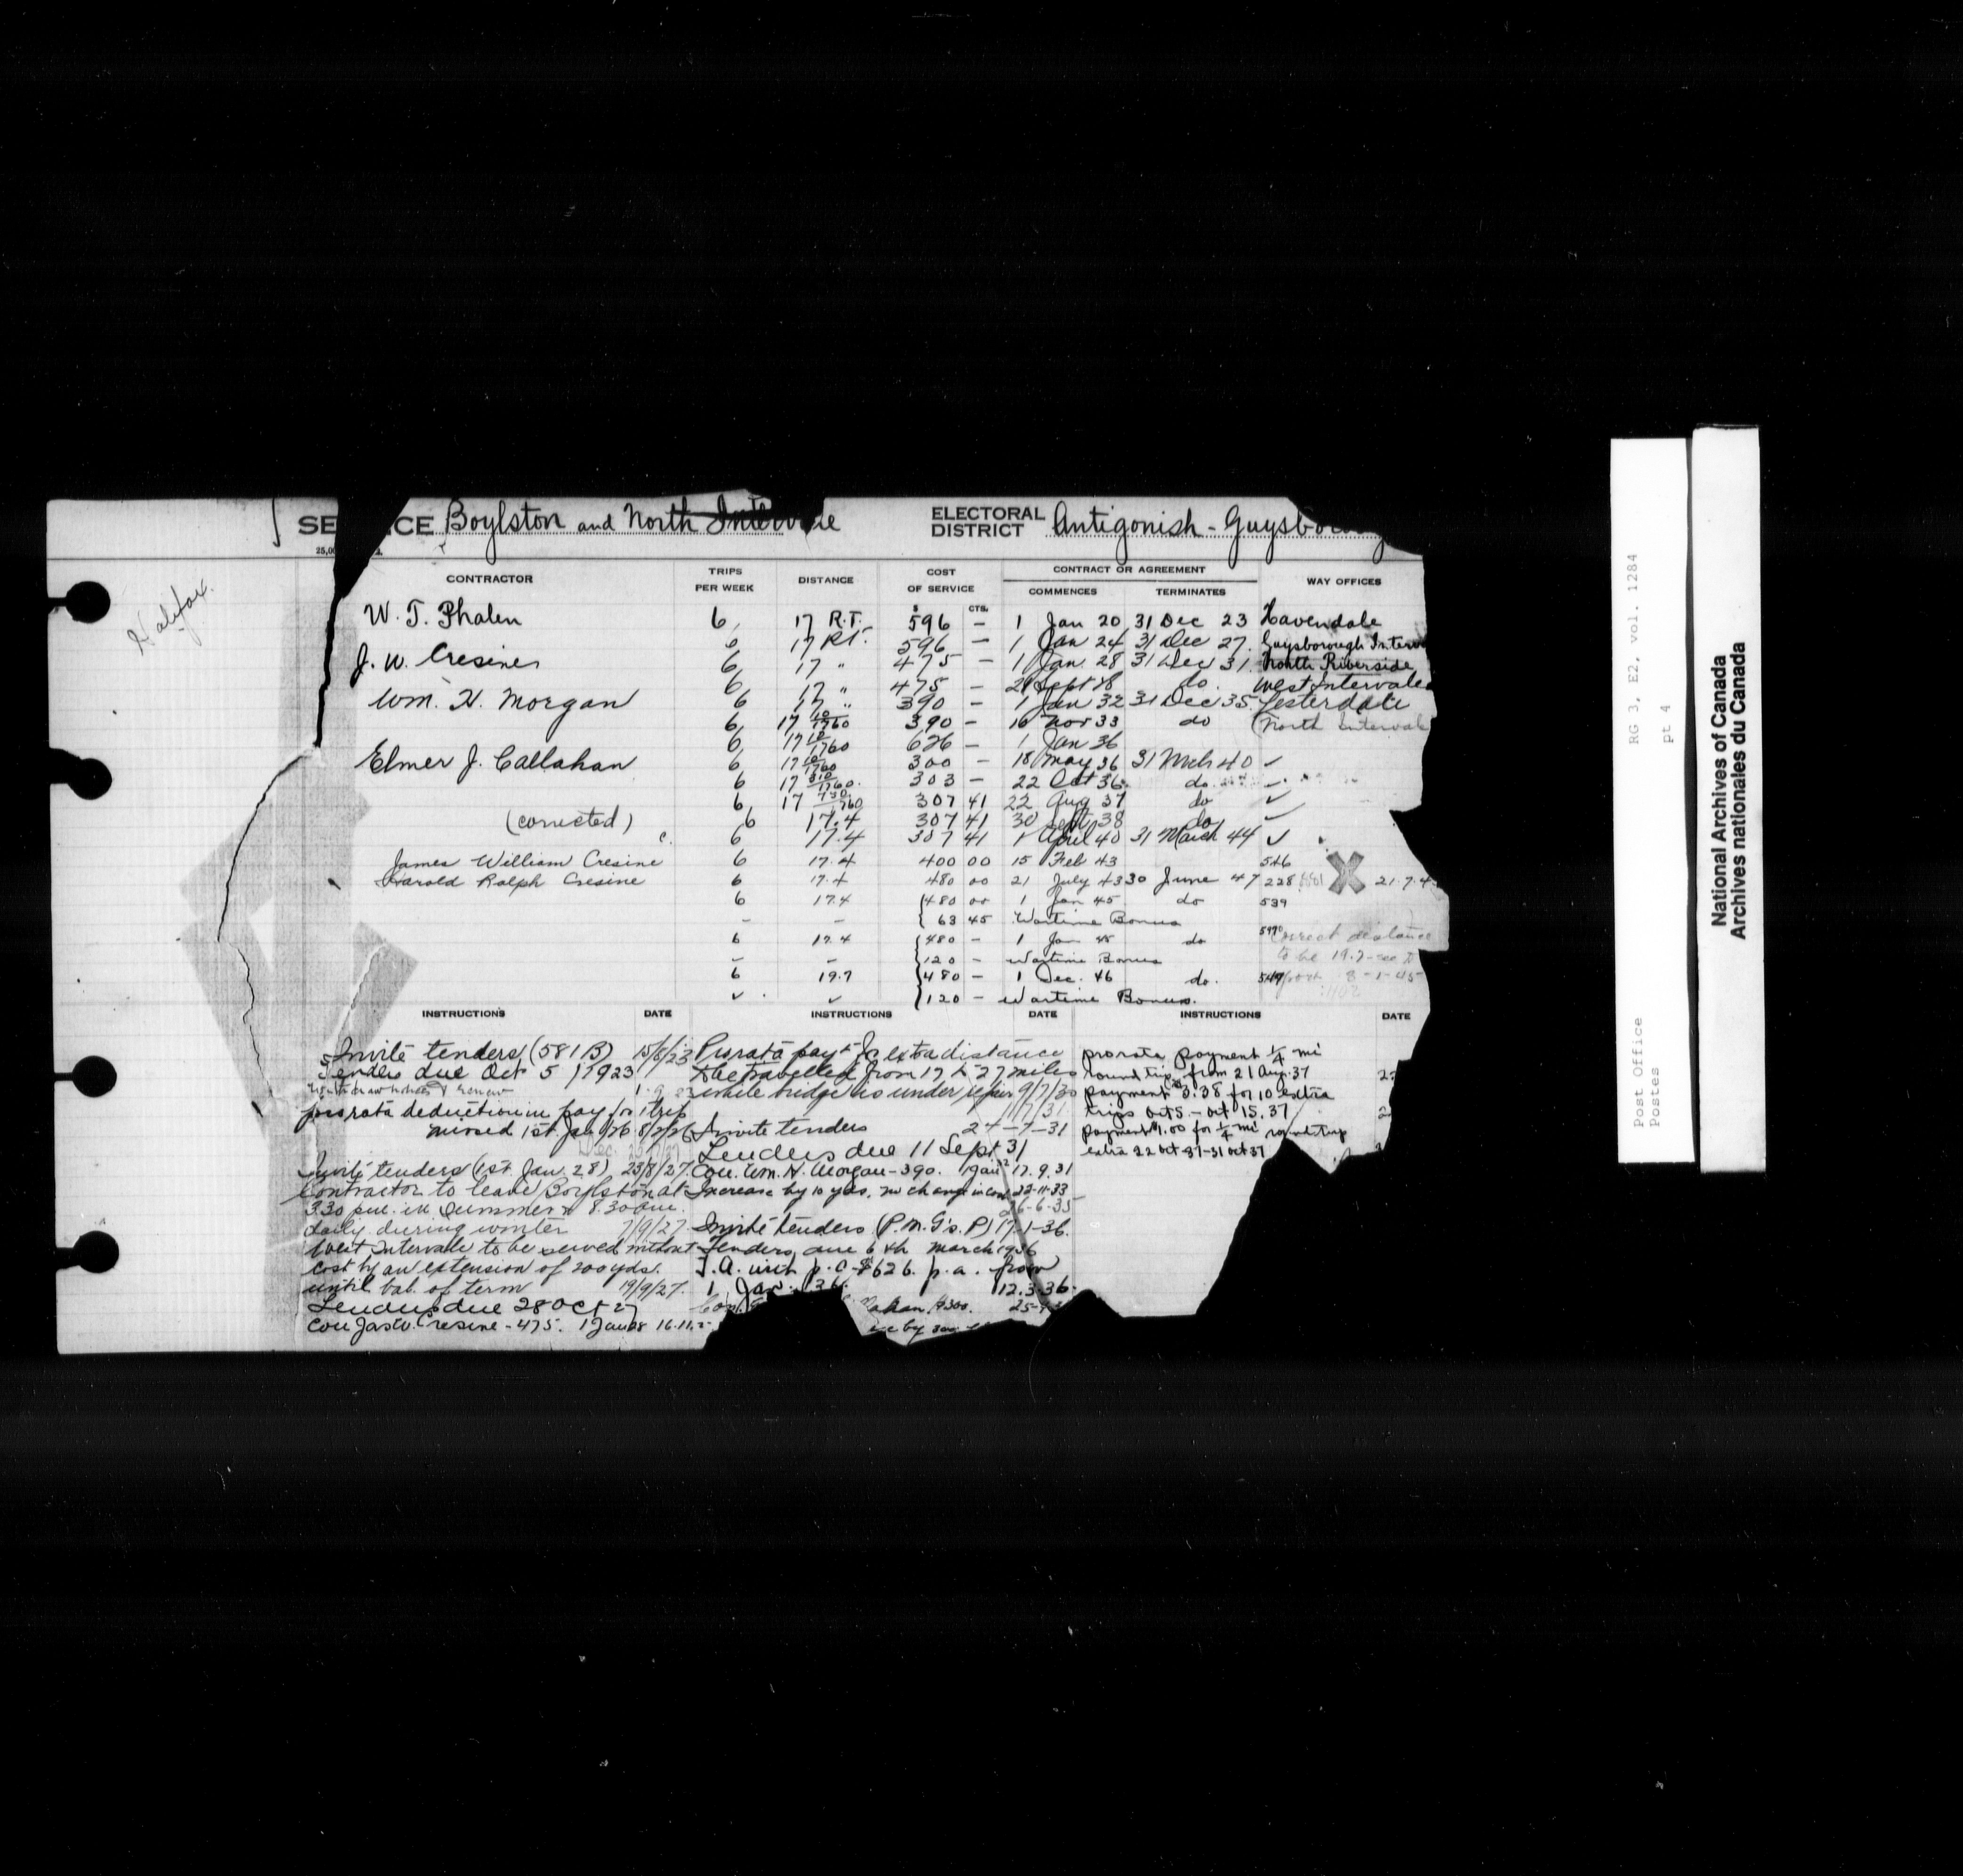 SE CE Boylston and North Intervale ELECTORAL DISTRICT Antigonish - Guysboro
25,0
Halifax.
CONTRACTOR TRIPS PER WEEK DISTANCE COST OF SERVICE CONTRACT OR AGREEMENT COMMENCES TERMINATES WAY OFFICES
$ CTS.
W. T. Phalen 6 17 R.T. 596 — 1 Jan 20 31 Dec 23 Havendale
6 17 R.T. 596 — 1 Jan 24 31 Dec 27 Guysborough Interv
J. W. Cresine 6 17 " 475 — 1 Jan. 28 31 Dec 31 North Riverside
6 17 " 475 — 21 Sept 28 do. West Intervale
Wm. H. Morgan 6 17 " 390 — 1 Jan 32 31 Dec 35 Lesterdale
6 17 10/1760 390 — 16 Nov 33 do North Interval
6 17 10/1760 626 — 1 Jan 36
Elmer J. Callahan 6 17 10/1760 300 — 18 May 36 31 Mch 40 ✓
6 17 310/1760 303 — 22 Oct 36 do ✓
6 17 730/1760 307 41 22 Aug 37 do ✓
(corrected) 6 17.4 307 41 30 Sept 38 do ✓
c. 6 17.4 307 41 1 April 40 31 March 44 ✓
James William Cresine 6 17.4 400 00 15 Feb 43 546
Harold Ralph Cresine 6 17.4 480 00 21 July 43 30 June 47 228 X 21.7.4
6 17.4 480 00 1 Jan 45 do 539
— — 63 45 Wartime Bonus
6 17.4 480 — 1 Jan 45 do Correct distance
— — 120 — Wartime Bonus to be 19.7 - see
6 19.7 480 — 1 Dec. 46 do. 549 8-1-45
✓ ✓ 120 — Wartime Bonus.
INSTRUCTIONS DATE INSTRUCTIONS DATE INSTRUCTIONS DATE
Invite tenders (581B) 15/8/23
Tenders due Oct 5 1923
prorata deduction in pay for 1 trip
missed 1st Jan/26 8/2/26
Invite tenders (1st. Jan. 28) 23/8/27
Contractor to leave Boylston at
3.30 p.m. in summer & 8.30 a.m.
daily during winter 7/9/27
West Intervale to be served without
cost by an extension of 200 yds.
until bal. of term 19/9/27.
Tenders due 28 Oct 27
Con Jas W. Cresine - 475. 1 Jan 28 16.11.2
Prorata payt for extra distance
to be travelled from 17 to 27 miles
while bridge is under repair 9/7/30
/7/31
Invite tenders 24-7-31
Tenders due 11 Sept 31
Con. Wm. H. Morgan - 390. 1 Jan 32 17.9.31
Increase by 10 yds. no change in cost 22-11-33
26-6-35
Invite tenders (P.M.G's. P) 17-1-36.
Tenders due 6th March 1936
T.A. with p.c. $626. p.a. from
1 Jan. 36. 12.3.36.
Con. ahan $300. 25-
by
prorata payment ¼ mi
round trip from 21 Aug. 37
payment 3.38 for 10 extra
trips Oct 5 - Oct 15. 37
payment $1.00 for ¼ mi round trip
extra 22 Oct 37-31 Oct 37
Post Office RG 3, E2, vol. 1284
Postes pt 4
National Archives of Canada
Archives nationales du Canada